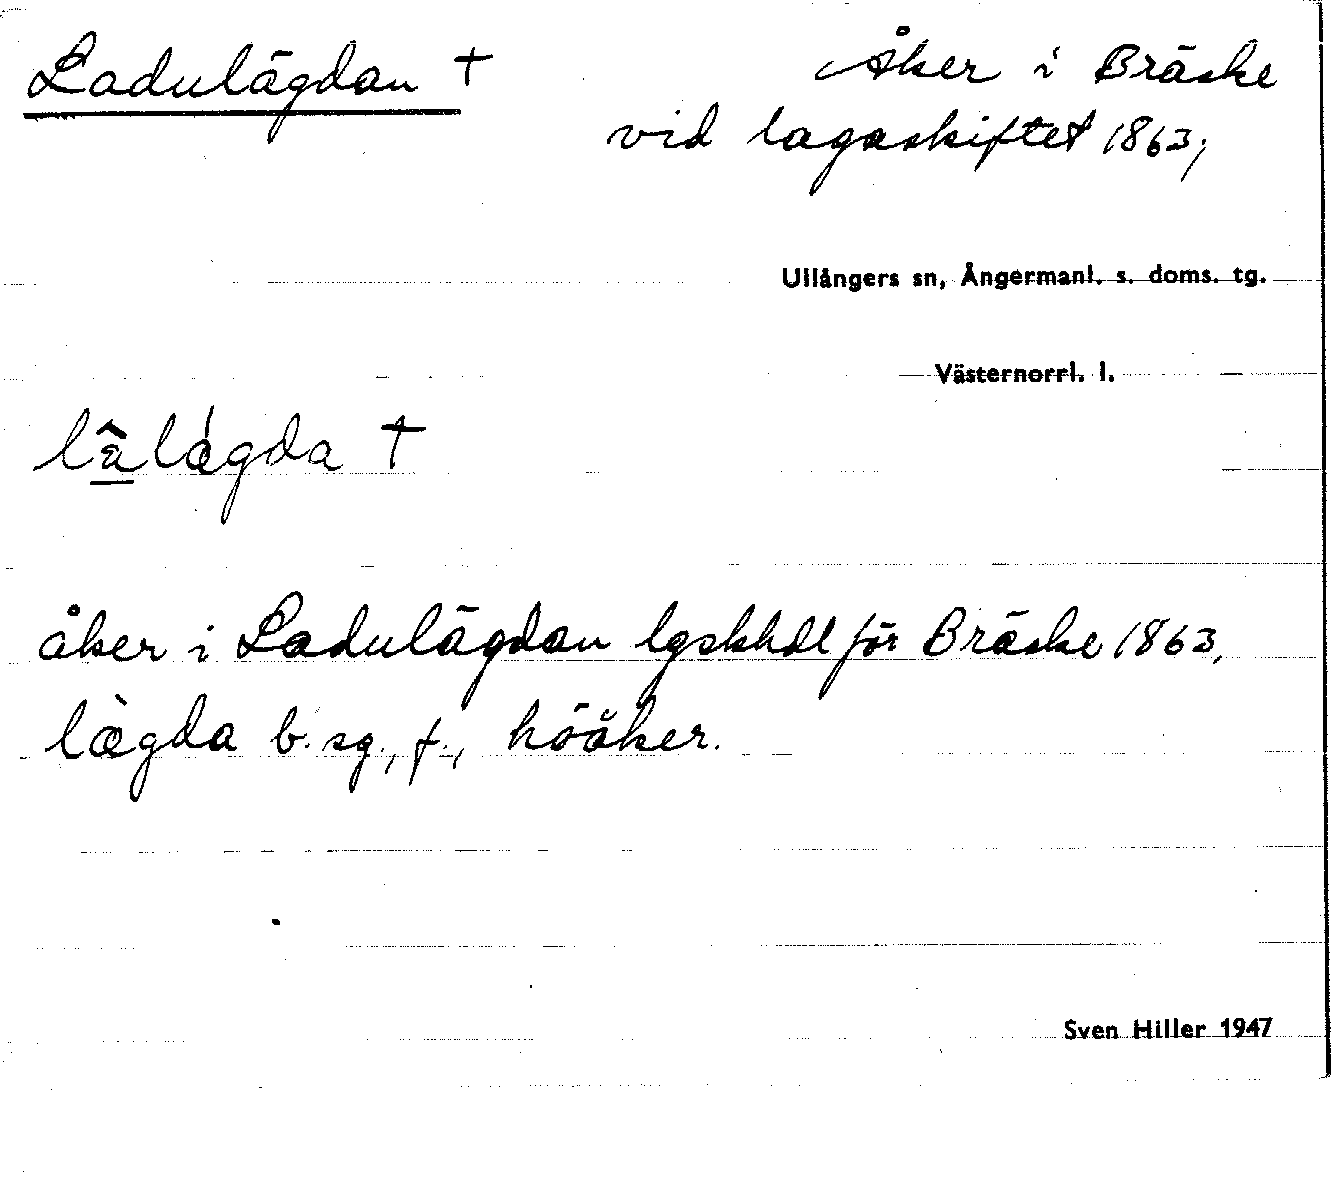 Ladulägdan †
Åker i Bräske
vid lagaskiftet 1863;
Ullångers sn, Ångermanl. s. doms. tg.
Västernorrl. l.
lâlágda †
åker i Ladulägdan lgskhdl för Bräske 1863,
lægda b. sg., f., höåker.
Sven Hiller 1947